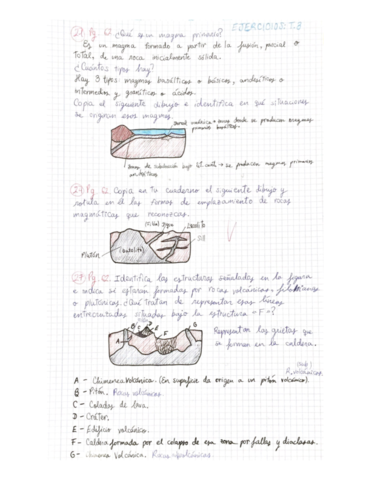 EJERCICIOS: T.3
¿Qué es un magma primario?
Es un magma formado a partir de la fusión, parcial o
total, de una roca inicialmente sólida.
¿Cuántos tipos hay?
Hay 3 tipos: magmas basálticos o básicos, andesíticos o
intermedios y graníticos o ácidos.
Copia el siguiente dibujo e identifica en qué situaciones
se originan esos magmas.
Dorsal oceánica → zonas donde se producen magmas
primarios basálticos.
Zonas de subducción bajo → Se producen magmas primarios
andesíticos
Copia en tu cuaderno el siguiente dibujo y
rotula en él las formas de emplazamiento de rocas
magmáticas que reconozcas.
Lacolito
Sill
Plutón
(batolito)
Identifica las estructuras señaladas en la figura
e indica si estarán formadas por rocas volcánicas, filonianas
o plutónicas. ¿Qué tratan de representar esas líneas
entrecortadas situadas bajo la estructura "F"?
Representan las grietas que
se forman en la caldera.
A
F
G
A - Chimenea volcánica. (En superficie da origen a un pitón volcánico).
B - Pitón. Rocas volcánicas.
C - Coladas de lava.
D - Cráter.
E - Edificio volcánico.
F - Caldera formada por el colapso de esa zona por fallas y diaclasas.
G - Chimenea Volcánica. Rocas